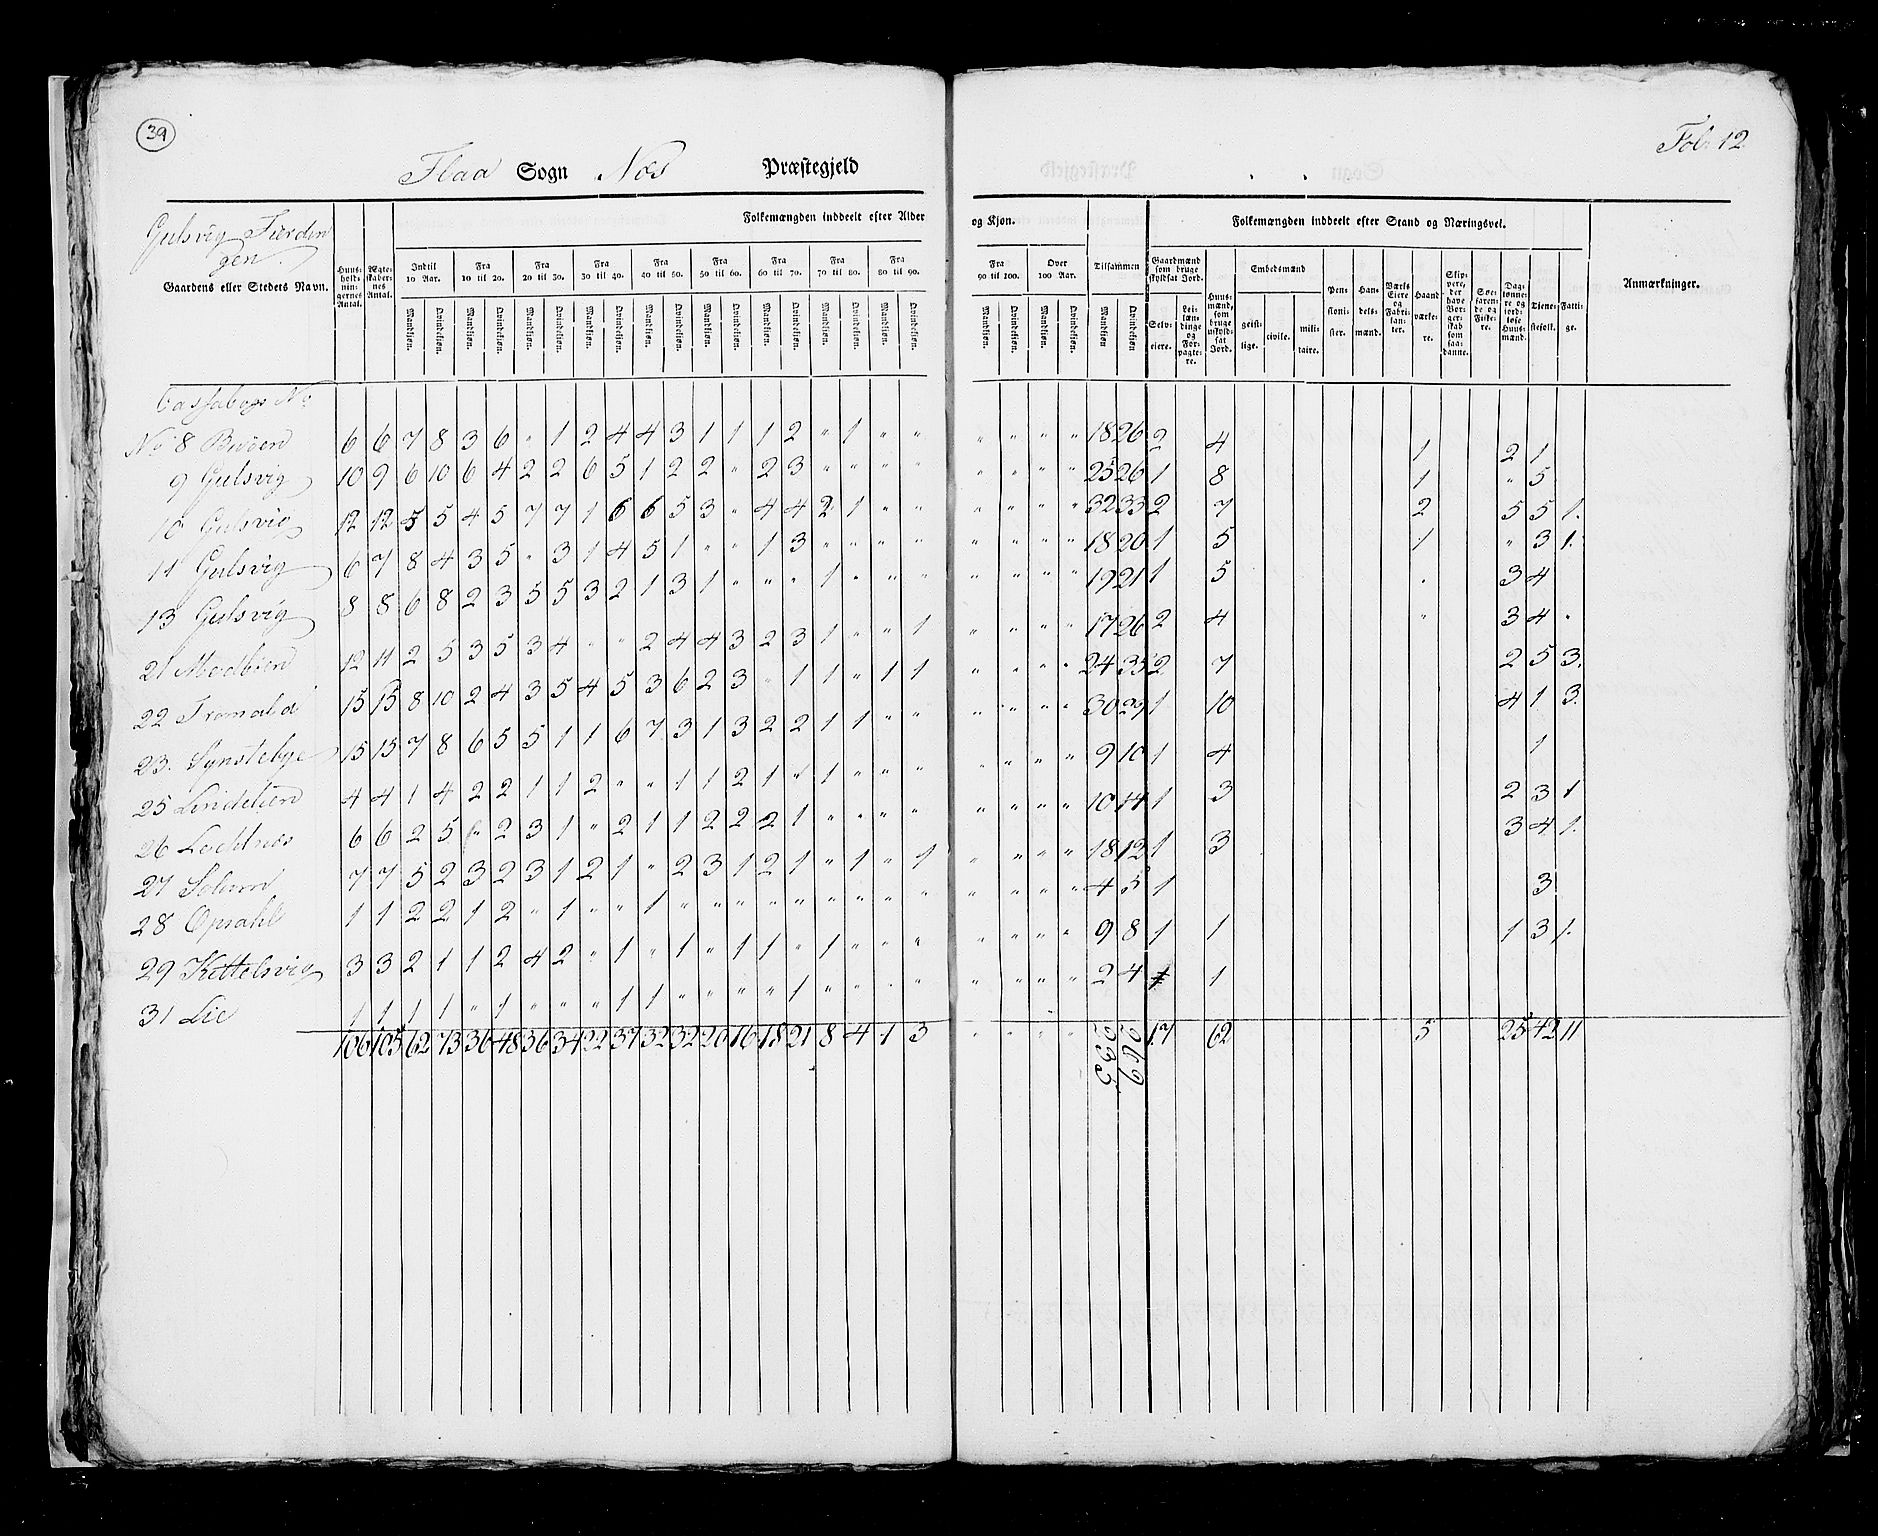 39
Fol. 12
Flaa Sogn Næs Præstegjeld
Gulsvig Fierdin
gen.
Gaardens eller Stedets Navn.
Huus-hold-nin-gernes Antal.
Ægte-skaber-nes Antal.
Folkemængden inddeelt efter Alder og Kjøn.
Indtil 10 Aar. Fra 10 til 20. Fra 20 til 30. Fra 30 til 40. Fra 40 til 50. Fra 50 til 60. Fra 60 til 70. Fra 70 til 80. Fra 80 til 90. Fra 90 til 100. Over 100 Aar. Tilsammen
Mandkiøn. Qvindekiøn. Mandkiøn. Qvindekiøn. Mandkiøn. Qvindekiøn. Mandkiøn. Qvindekiøn. Mandkiøn. Qvindekiøn. Mandkiøn. Qvindekiøn. Mandkiøn. Qvindekiøn. Mandkiøn. Qvindekiøn. Mandkiøn. Qvindekiøn. Mandkiøn. Qvindekiøn. Mandkiøn. Qvindekiøn. Mandkiøn Qvindekiøn
Folkemængden inddeelt efter Stand og Næringsvei.
Gaardmænd som bruge skyldsat Jord.
Selv-eiere.
Lei-læn-dinge og For-pagte-re.
Huus-mænd, som bruge uskyld-sat Jord.
Embedsmænd
geist-lige. civile. mili-taire.
Pen-sioni-ster.
Han-dels-mænd.
Værks Eiere og Fabri-kan-ter.
Haand værke-re.
Skip-pere, der have Bor-ger-skab som saa-danne.
Søe-faren-de og Fiske-re.
Dag-lønne-re og jord-løse Huus-mænd.
Tiene-stefolk.
Fatti-ge.
Anmærkninger.
No 8 6 6 7 8 3 6 " 1 2 4 4 3 1 1 1 2 " 1 " " " " " " 18 26 2 4 1 2 1
9 Gulsvig 10 9 6 10 6 4 2 2 6 5 1 2 2 " 2 3 " " " " " " " " 25 26 1 8 1 " 5
10 Gulsvig 12 12 5 5 4 5 7 7 1 6 6 5 3 " 4 4 2 1 " " " " " " 32 33 2 7 2 5 5 1.
11 Gulsvig 6 7 8 4 3 5 " 3 1 4 5 1 " " 1 3 " " " " " " " " 18 20 1 5 1 " 3 1.
13 Gulsvig 8 8 6 8 2 3 5 5 3 2 1 3 1 " " " 1 " " " " " " " 19 21 1 5 " 3 4
21 Modbien 12 11 2 5 3 5 3 4 " " 2 4 4 3 2 3 1 " " 1 " " " " 17 26 2 4 " 3 4 "
22 Tromald 15 13 8 10 2 4 3 5 4 5 3 6 2 3 " 1 1 " 1 1 " " " " 24 35 2 7 2 5 3.
23. Synstebye 15 15 7 8 6 5 5 1 1 6 7 3 1 3 2 2 1 1 " " " " " " 30 29 1 10 4 1 3.
25 Lindelien 4 4 1 4 2 2 1 1 2 " " 1 1 2 1 " 1 " " " " " " " 9 10 1 4 1
26 6 6 2 5 " 2 3 1 " 2 1 1 2 2 2 1 " " " " " " " " 10 14 1 3 2 3 1
27 Solum 7 7 5 2 3 2 3 1 2 1 " 2 3 1 2 1 " 1 " 1 " " " " 18 12 1 3 3 4 1.
28 Opsahl 1 1 2 2 1 2 " 1 " " 1 " " " " " " " " " " " " " 4 5 1 3
29 Kettelsvig 3 3 2 1 1 2 4 2 " 1 " 1 " 1 1 " 1 " " " " " " " 9 8 1 1 1 3 1.
31 Lie 1 1 1 1 " 1 " " " 1 1 " " " " 1 " " " " " " " " 2 4 1 1
106 105 62 73 36 48 36 34 22 37 32 32 20 16 18 21 8 4 1 3 " " " " 235 269 17 62 5 25 42 11